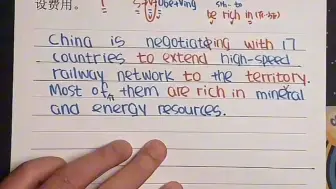 设费用。
be rich in
China is negotiating with 17
countries to extend high-speed
railway network to the territory.
Most of them are rich in mineral
and energy resources.